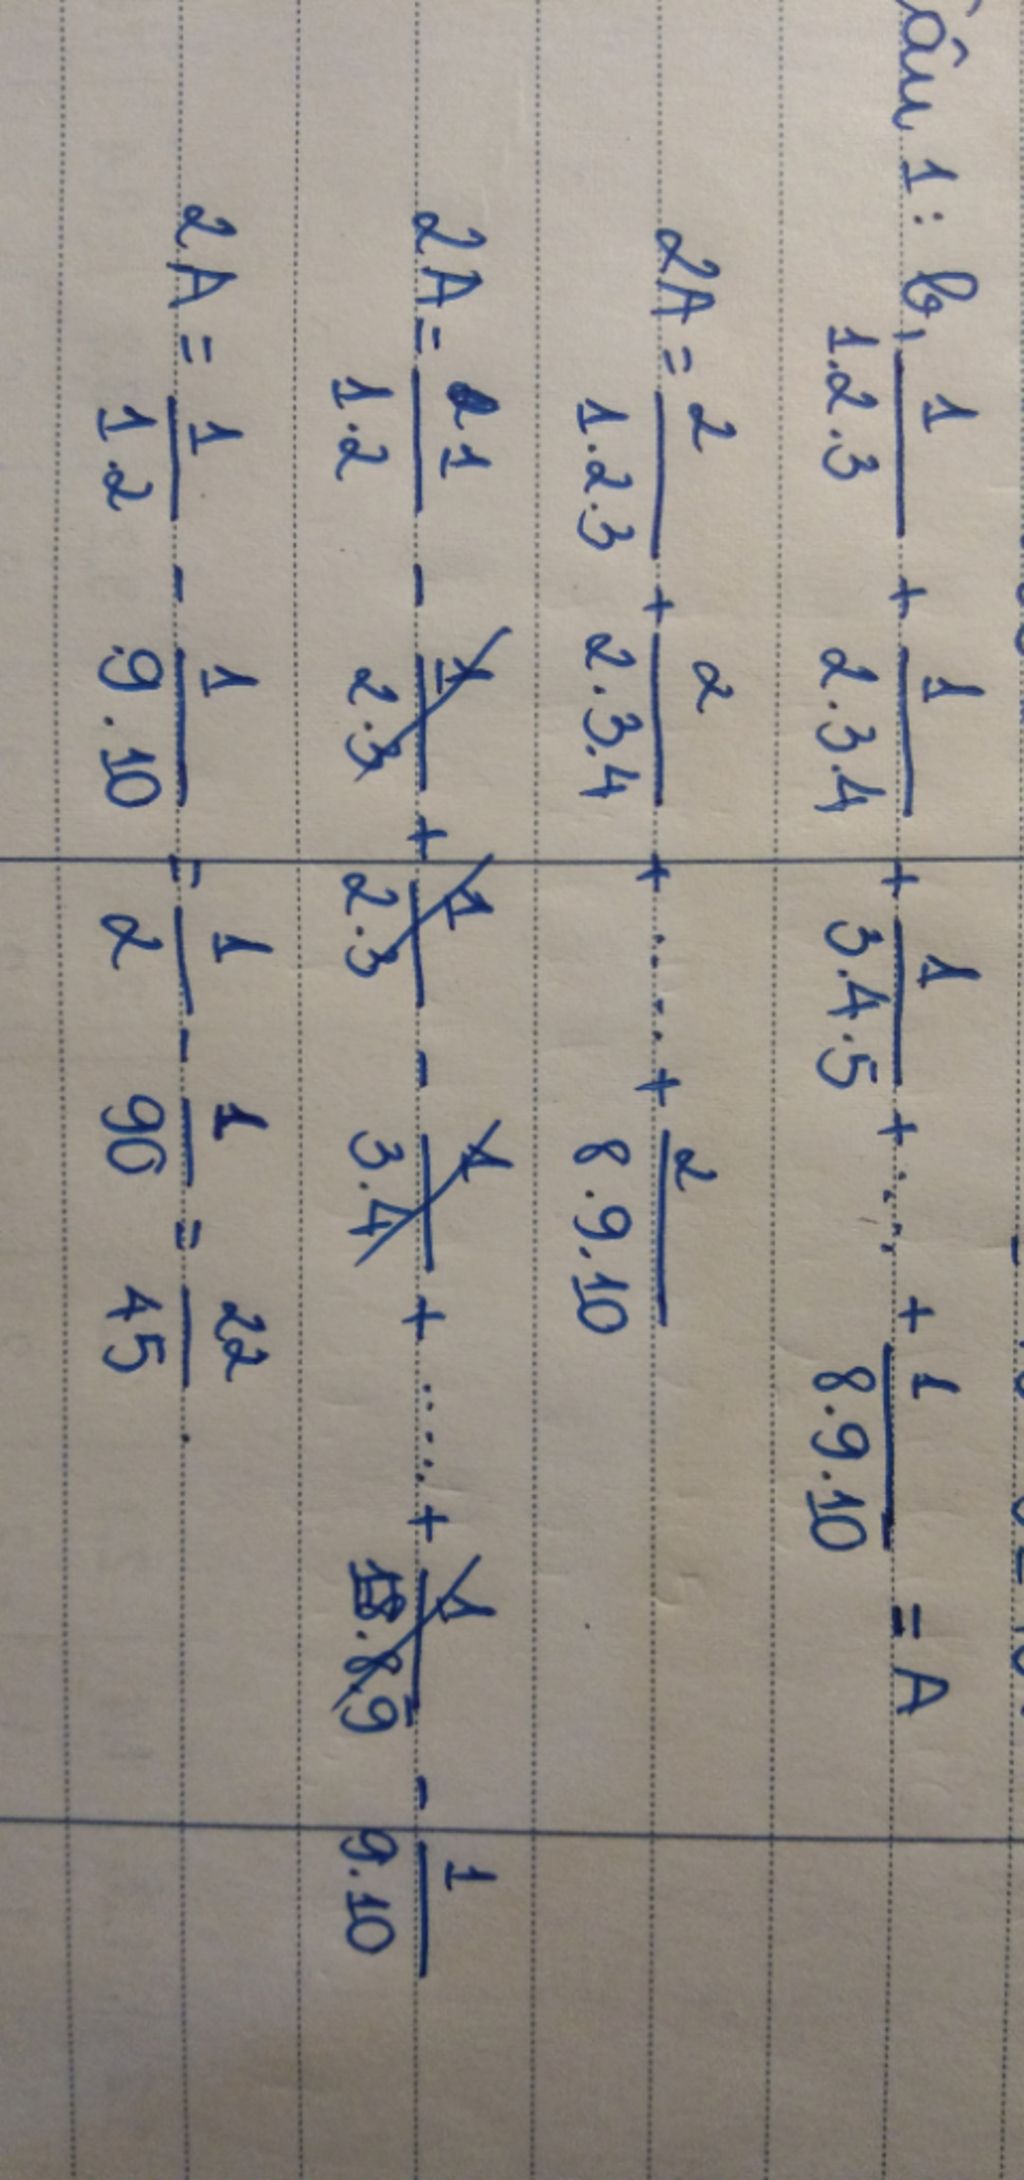 Câu 1: b, 1/1.2.3 + 1/2.3.4 + 1/3.4.5 + .... + 1/8.9.10 = A
2A = 2/1.2.3 + 2/2.3.4 + .... + 2/8.9.10
2A = 1/1.2 - 1/2.3 + 1/2.3 - 1/3.4 + ..... + 1/8.9 - 1/9.10
2A = 1/1.2 - 1/9.10 = 1/2 - 1/90 = 22/45.